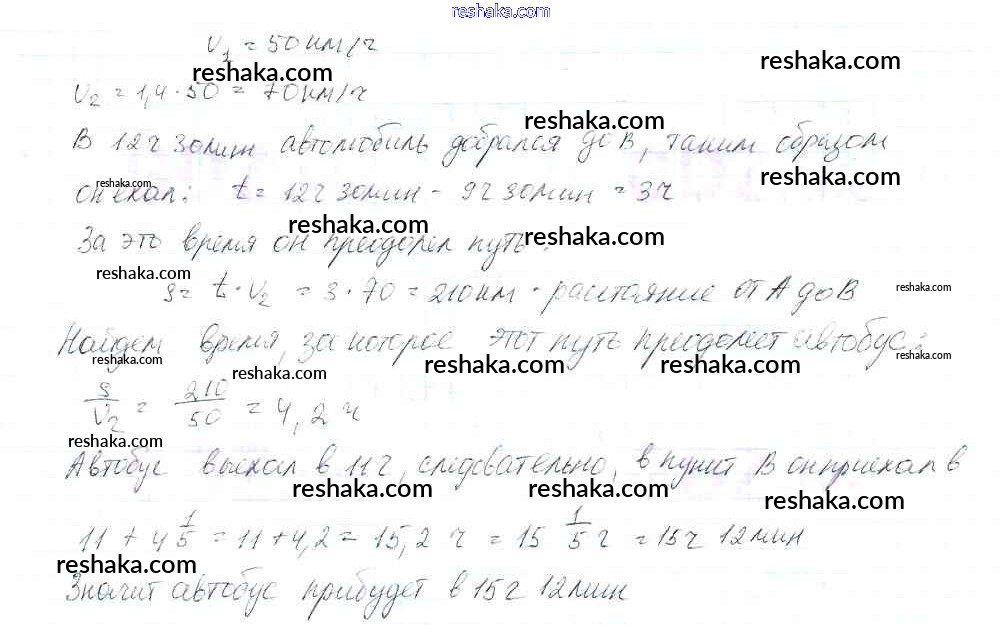 reshaka.com
V₁ = 50 км/ч
reshaka.com
reshaka.com
V₂ = 1,4 · 50 = 70 км/ч
reshaka.com
В 12ч 30мин автомобиль добрался до В, таким образом
reshaka.com
reshaka.com
он ехал: t = 12ч 30мин - 9ч 30мин = 3ч
reshaka.com
reshaka.com
За это время он преодолел путь:
reshaka.com
S = t · V₂ = 3 · 70 = 210 км - расстояние от А до В
reshaka.com
Найдем время, за которое этот путь преодолеет автобус:
reshaka.com
reshaka.com
reshaka.com
reshaka.com
reshaka.com
S/V₂ = 210/50 = 4,2 ч
reshaka.com
Автобус выехал в 11ч, следовательно, в пункт В он приехал в
reshaka.com
reshaka.com
reshaka.com
11 + 4 1/5 = 11 + 4,2 = 15,2 ч = 15 1/5 ч = 15ч 12мин
reshaka.com
Значит автобус прибудет в 15ч 12мин